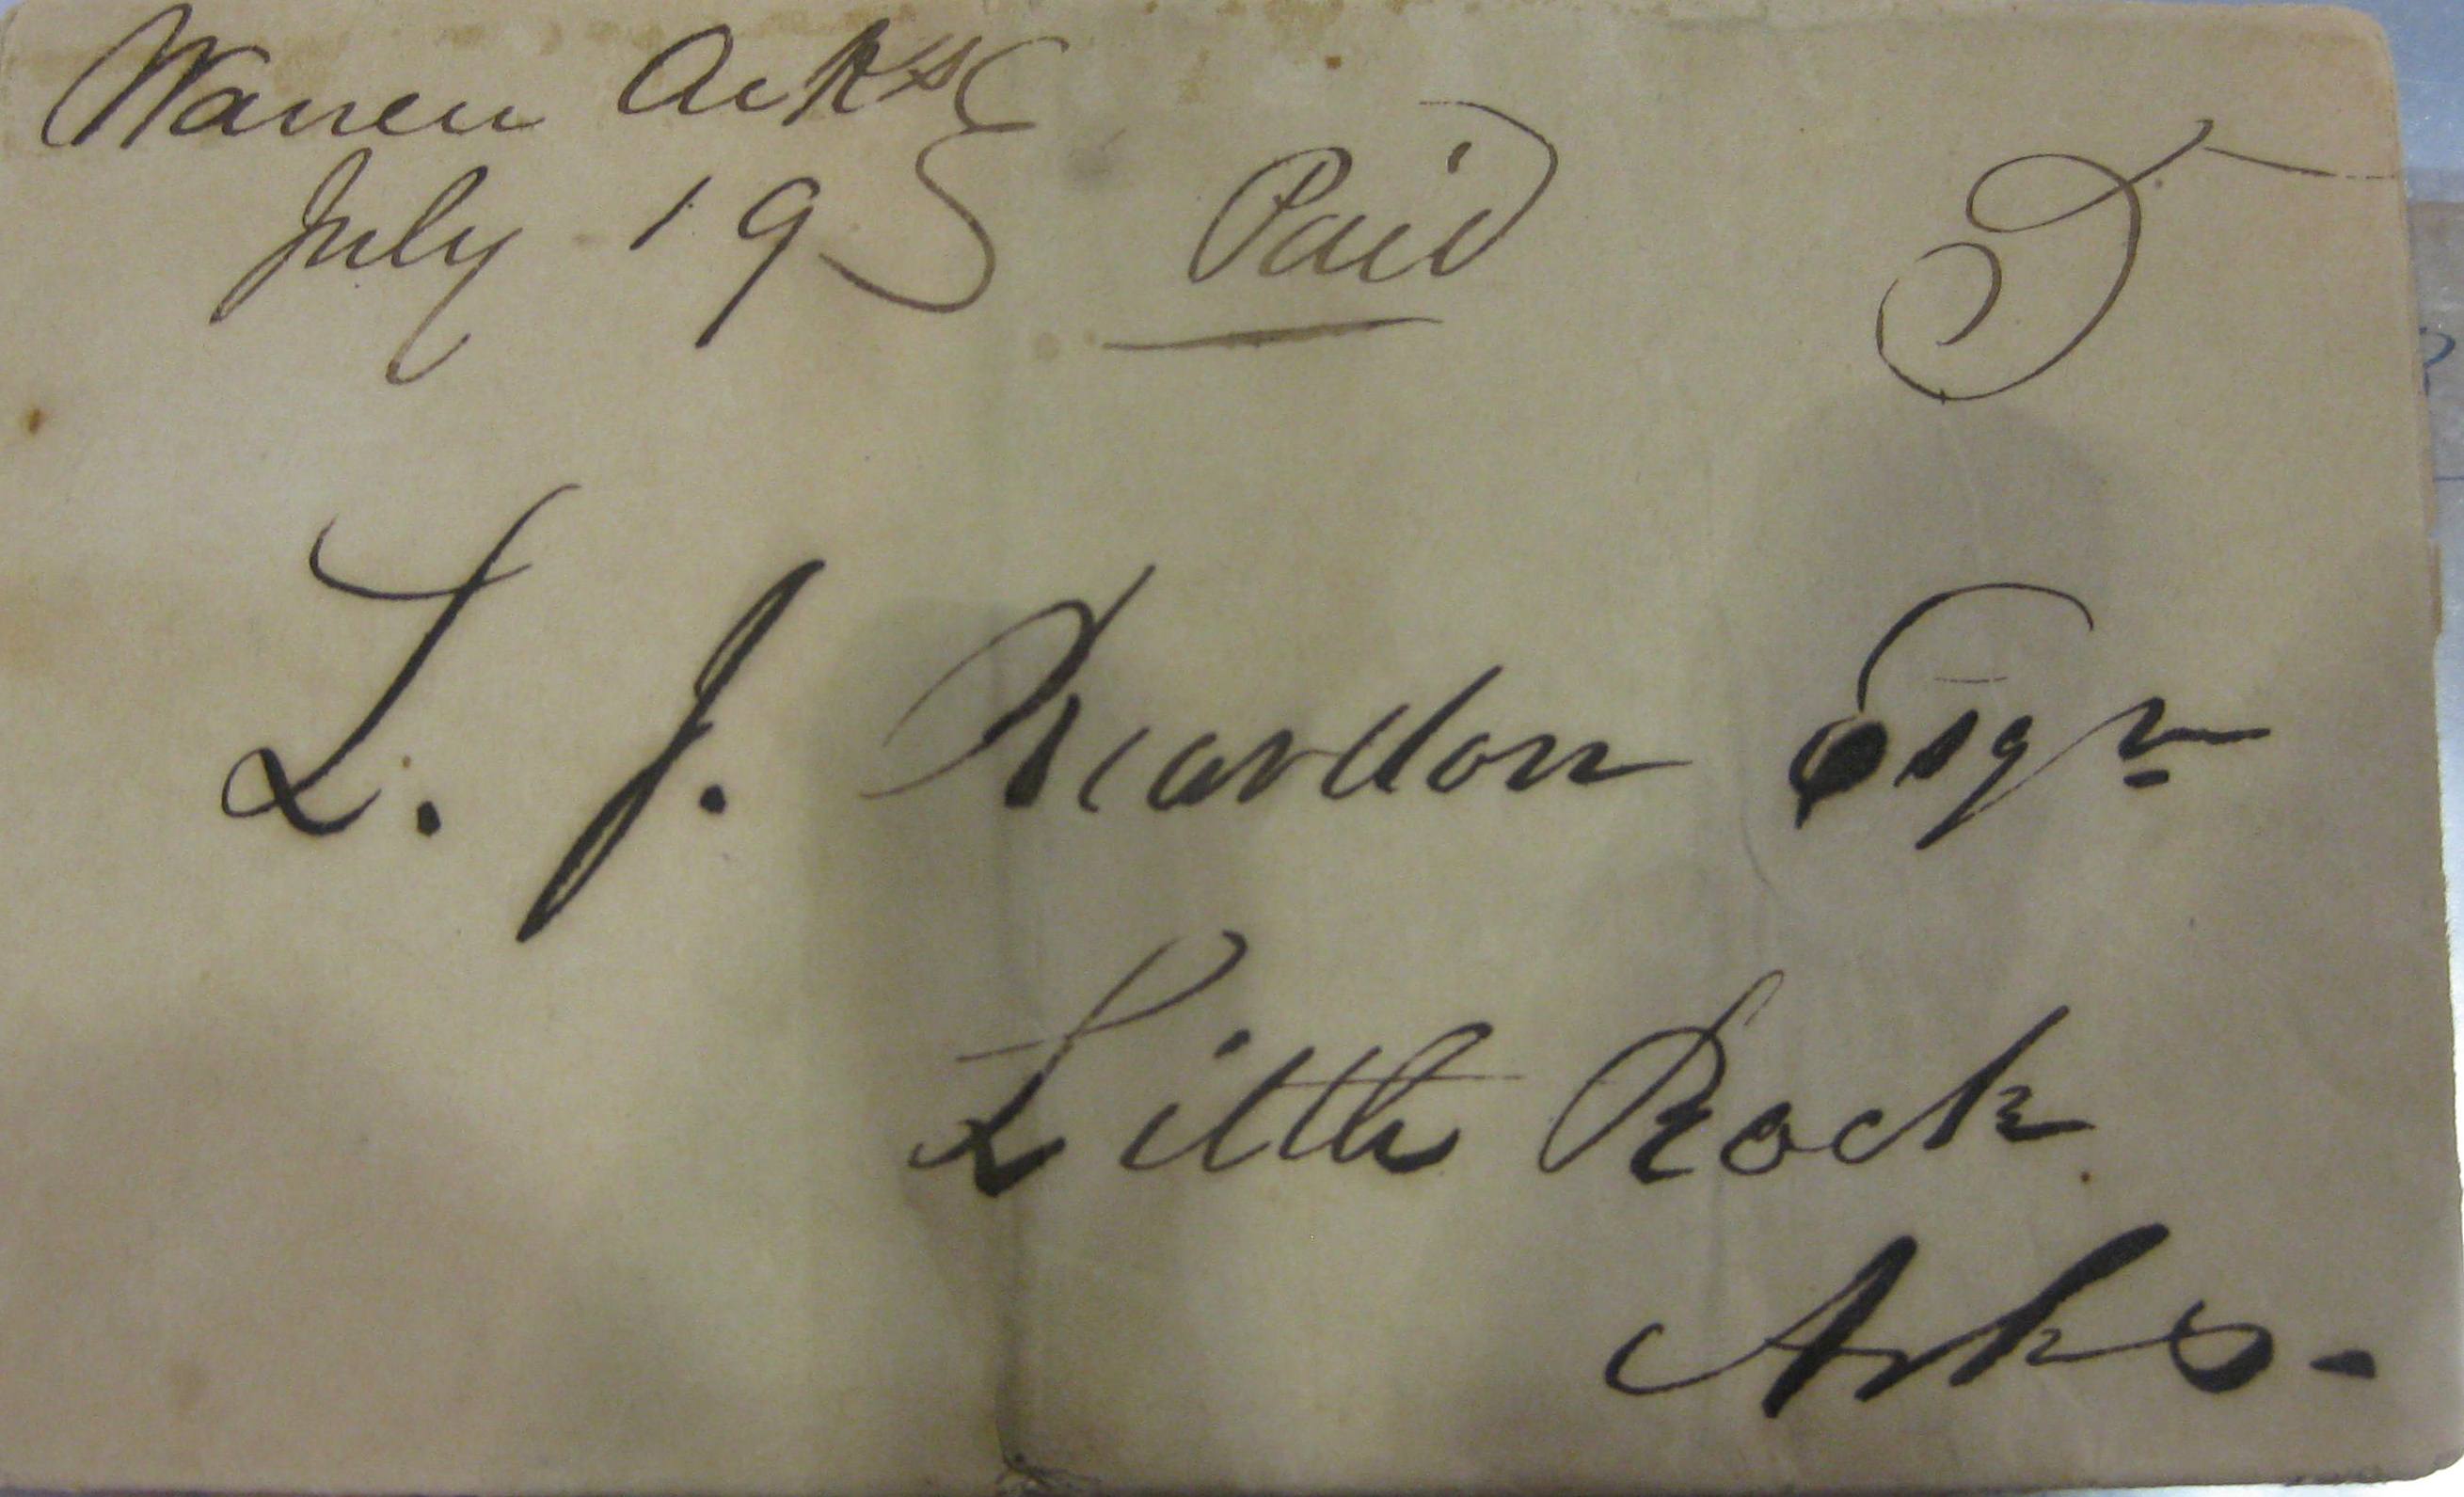 Warren Arks
July 19 Paid 5
L. J. Reardon Esqr
Little Rock
Arks.